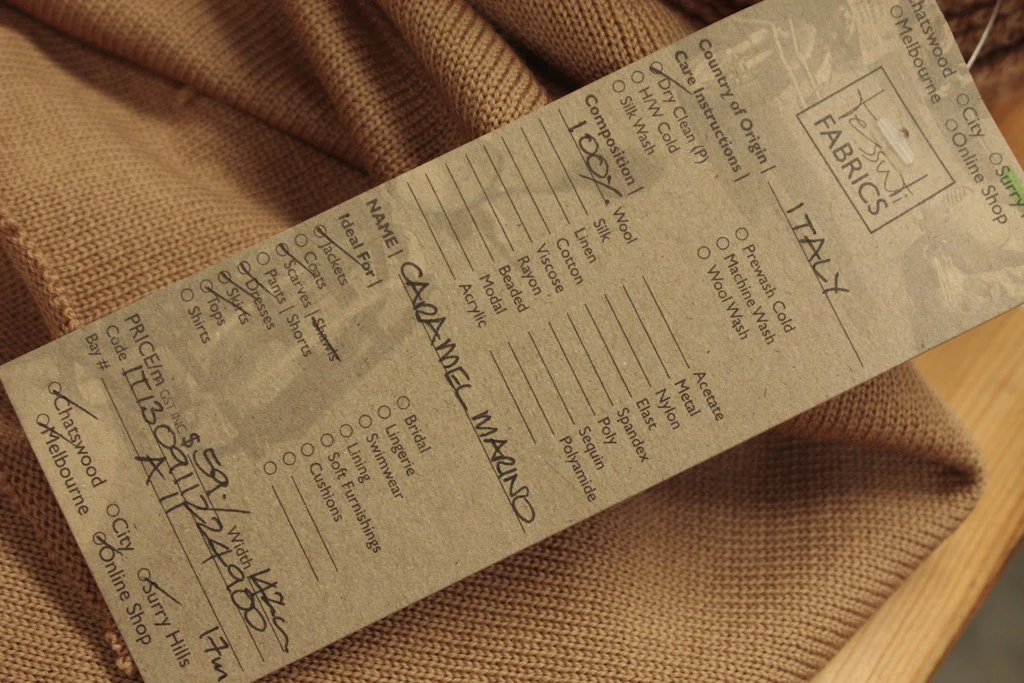 Chatswood
City
Surry
Melbourne
Online Shop
Tessuti
FABRICS
Country of Origin | ITALY
Care Instructions |
Dry Clean (P)
Prewash Cold
H/W Cold
Machine Wash
Silk Wash
Wool Wash
Composition |
100% Wool
Acetate
Silk
Metal
Linen
Nylon
Cotton
Elast
Viscose
Spandex
Rayon
Poly
Beaded
Sequin
Modal
Polyamide
Acrylic
NAME | CARAMEL MARINO
Ideal For |
Jackets
Bridal
Coats
Lingerie
Scarves | Shawls
Swimwear
Pants | Shorts
Lining
Dresses
Soft Furnishings
Skirts
Cushions
Tops
Shirts
PRICE/m GST INC $59./ Width 142cm
Code IT130911224900
Bay # A11
Chatswood
City
Surry Hills
17m
Melbourne
Online Shop